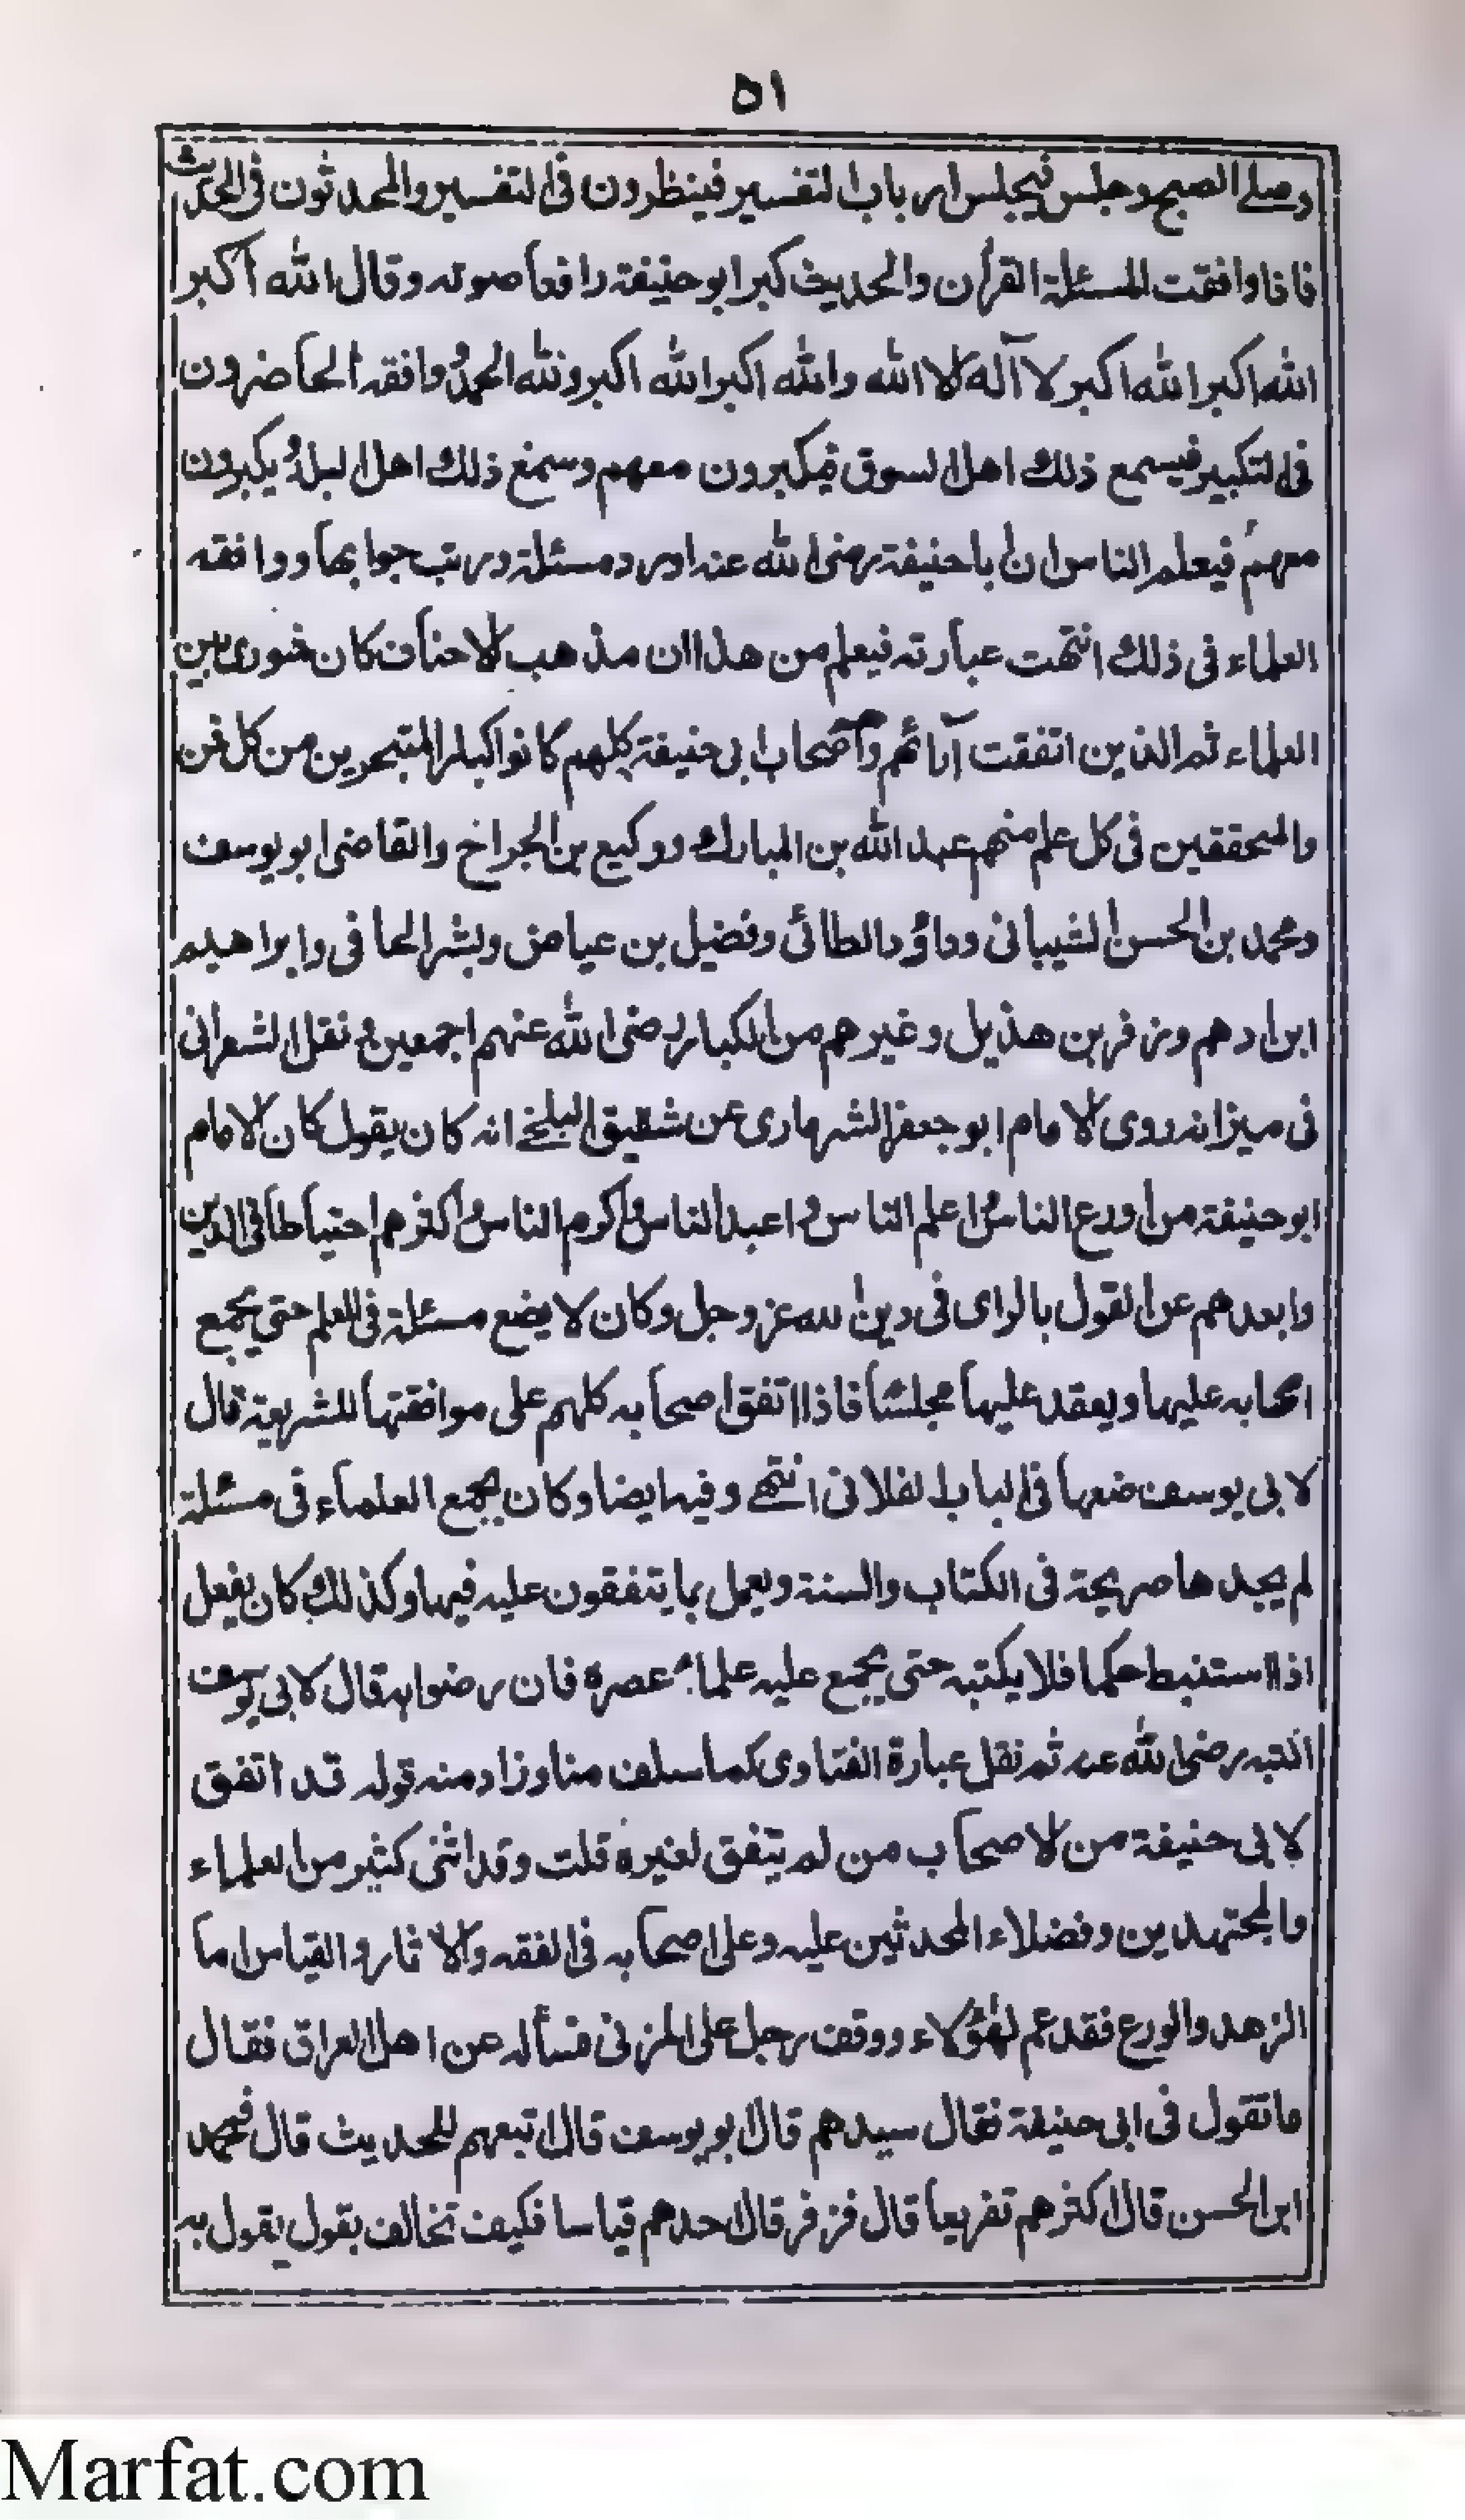 ٥١
وصلے الصبح وجلس فیجلس ارباب التفسیر فینظرون فی التفسیر والمحدثون فی الحدیث
فاذا وافقت المسئلة القرأن والحدیث کبر ابو حنیفة رافعا صوته وقال الله اکبر
الله اکبر الله اکبر لا آله الا الله والله اکبر الله اکبر ولله الحمد وافقه الحاضرون
فی التکبیر فیسمع ذلك اهل السوق فیکبرون معهم وسمع ذلك اهل البلد یکبرون
معهم فیعلم الناس ان اباحنیفة رضی الله عنه اورد مسئلة ورتب جوابها ووافقه
العلماء فی ذلك انتهت عبارته فیعلم من هذا ان مذهب الاحناف کان شوری بین
العلماء ثم الذین اتفقت آرائهم واصحاب ابی حنیفة کلهم کانوا کبار المتبحرین من کل فن
والمحققین فی کل علم منهم عبد الله بن المبارك ووکیع بن الجراح والقاضی ابو یوسف
ومحمد بن الحسن الشیبانی وداؤد الطائی وفضیل بن عیاض وبشر الحافی وابراهیم
ابن ادهم وزفر بن هذیل وغیرهم من الکبار رضی الله عنهم اجمعین ونقل الشعرانی
فی میزانه روی الامام ابو جعفر الشهاری عن شقیق البلخے انه کان یقول کان الامام
ابو حنیفة من اورع الناس واعلم الناس واعبد الناس واکرم الناس واکثرهم احتیاطا فی الدین
وابعدهم عن القول بالرای فی دین الله عز وجل وکان لا یضع مسئلة فی العلم حتی یجمع
اصحابه علیها ویعقد علیها مجلسا فاذا اتفق اصحابه کلهم علی موافقتها للشریعة قال
لابی یوسف ضعها فی الباب الفلانی انتهے وفیه ایضا وکان یجمع العلماء فی مسئلة
لم یجدها صریحة فی الکتاب والسنة ویعمل بما یتفقون علیه فیها وکذلك کان یفعل
اذا استنبط حکما فلا یکتبه حتی یجمع علیه علماء عصره فان رضوا به قال لابی یوسف
اکتبه رضی الله عنه ثم نقل عبارة الفتاوی کما سلف منا وزاد منه قوله قد اتفق
لابی حنیفة من الاصحاب من لم یتفق لغیره قلت وقد اثنی کثیر من العلماء
والمجتهدین وفضلاء المحدثین علیه وعلی اصحابه فی الفقه والاثار والقیاس اما
الزهد والورع فقد عم لهؤلاء ووقف رجل علی المزنی فسأله عن اهل العراق فقال
ما تقول فی ابی حنیفة فقال سیدهم قال ابو یوسف قال اتبعهم للحدیث قال فمحمد
ابن الحسن قال اکثرهم تفریعا قال فزفر قال احدهم قیاسا فکیف تخالف بقول یقول به
Marfat.com